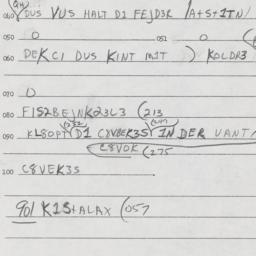 040 DUS VUS HALT D1 FEJD3R (A+S+1TN/
050 O 051 O
060 DEKCI DUS KINT MIT ) KOLDR3
070 O
080 F1S2BEJNK23L3 (213
090 KL8OPT (D1 C8VBEK3S) IN DER VANT/
C8VOK (275
100 C8VEK3S
901 K1S+ALAX (057